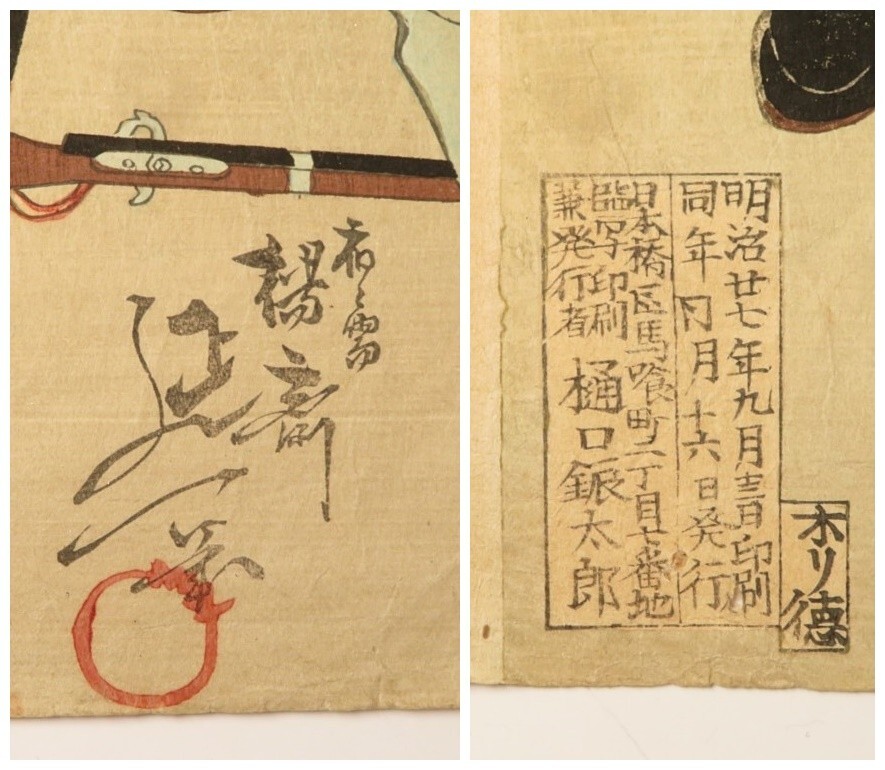 應需
楊斎
延一
筆
明治廿七年九月十三日印刷
同年同月十六日発行
日本橋区馬喰町二丁目七番地
臨写印刷
兼発行者 樋口銀太郎
ホリ徳